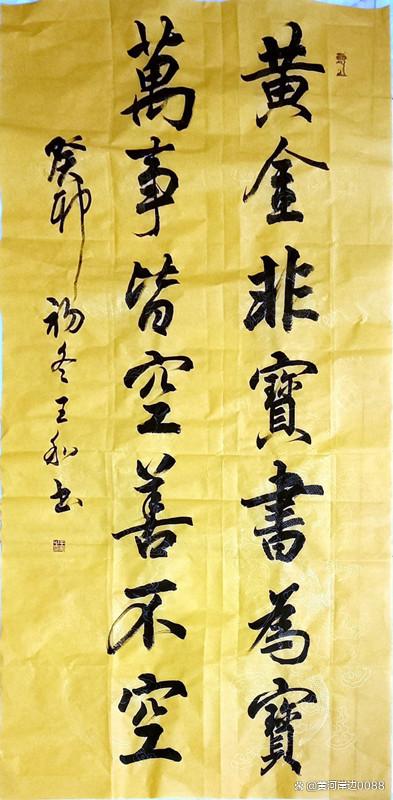 黃金非寶書為寶
萬事皆空善不空
癸卯初冬王和书
@黄河岸边0088